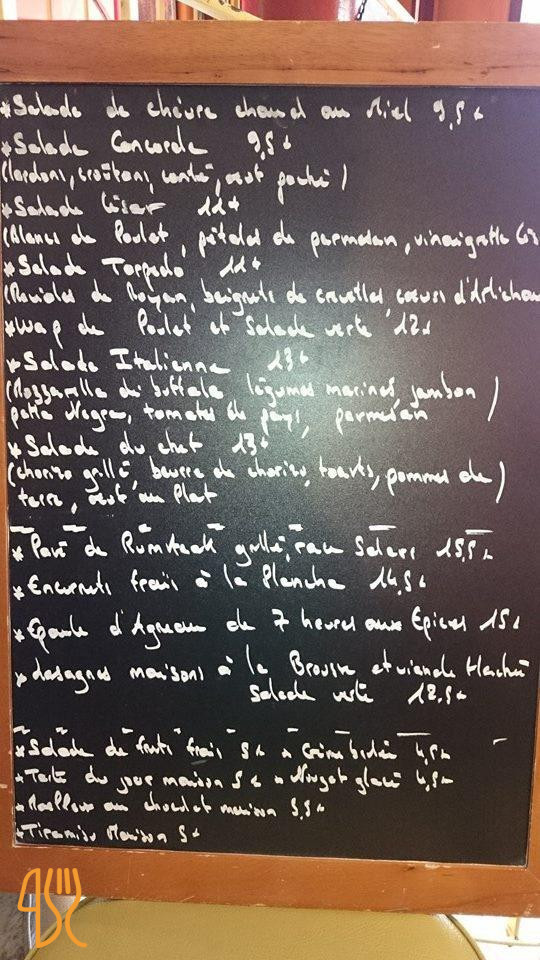 *Salade de chèvre chaud au Miel 9,5€
*Salade Concorde 9,5€
(lardons, croûtons, comté, œuf poché)
*Salade César 11€
(Blancs de Poulet, pétales de parmesan, vinaigrette
*Salade Torpedo 11€
(Ravioles de Royan, beignets de crevettes, cœurs d'Artichau
*Wap de Poulet et Salade verte 12€
*Salade Italienne 13€
(Mozzarella di buffala légumes marinés, jambon
patta Negra, tomates de pays, parmesan)
*Salade du chef 13€
(chorizo grillé, beurre de chorizo, toasts, pommes de
terre, œuf au Plat)
*Pavé de Rumsteak grillé, 15,5€
*Encornets frais à la Plancha 14,5€
*Epaule d'Agneau de 7 heures aux Epices 15€
*Lasagnes maisons à la Brousse et viande Hachée
Salade verte 12,5€
*Salade de fruits frais 5€ *Crème brûlée 4,5€
*Tarte du jour maison 5€ *Nougat glacé 4,5€
*Moelleux au chocolat maison 5,5€
*Tiramisu Maison 5€